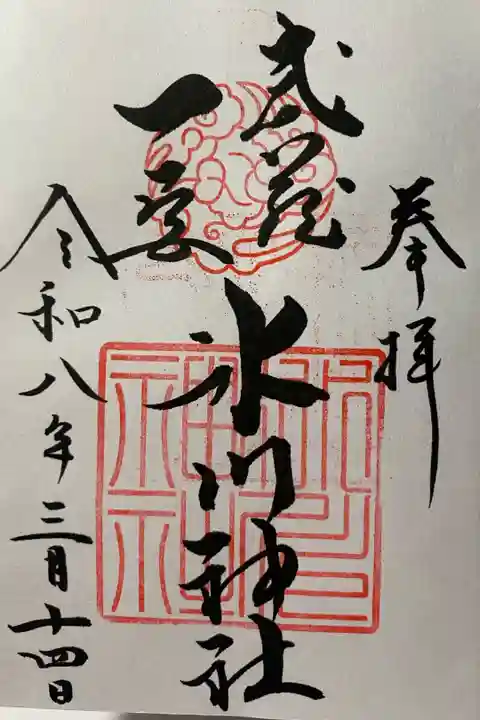 奉拝
武蔵
一宮
氷川神社
令和八年三月十四日
氷川神社